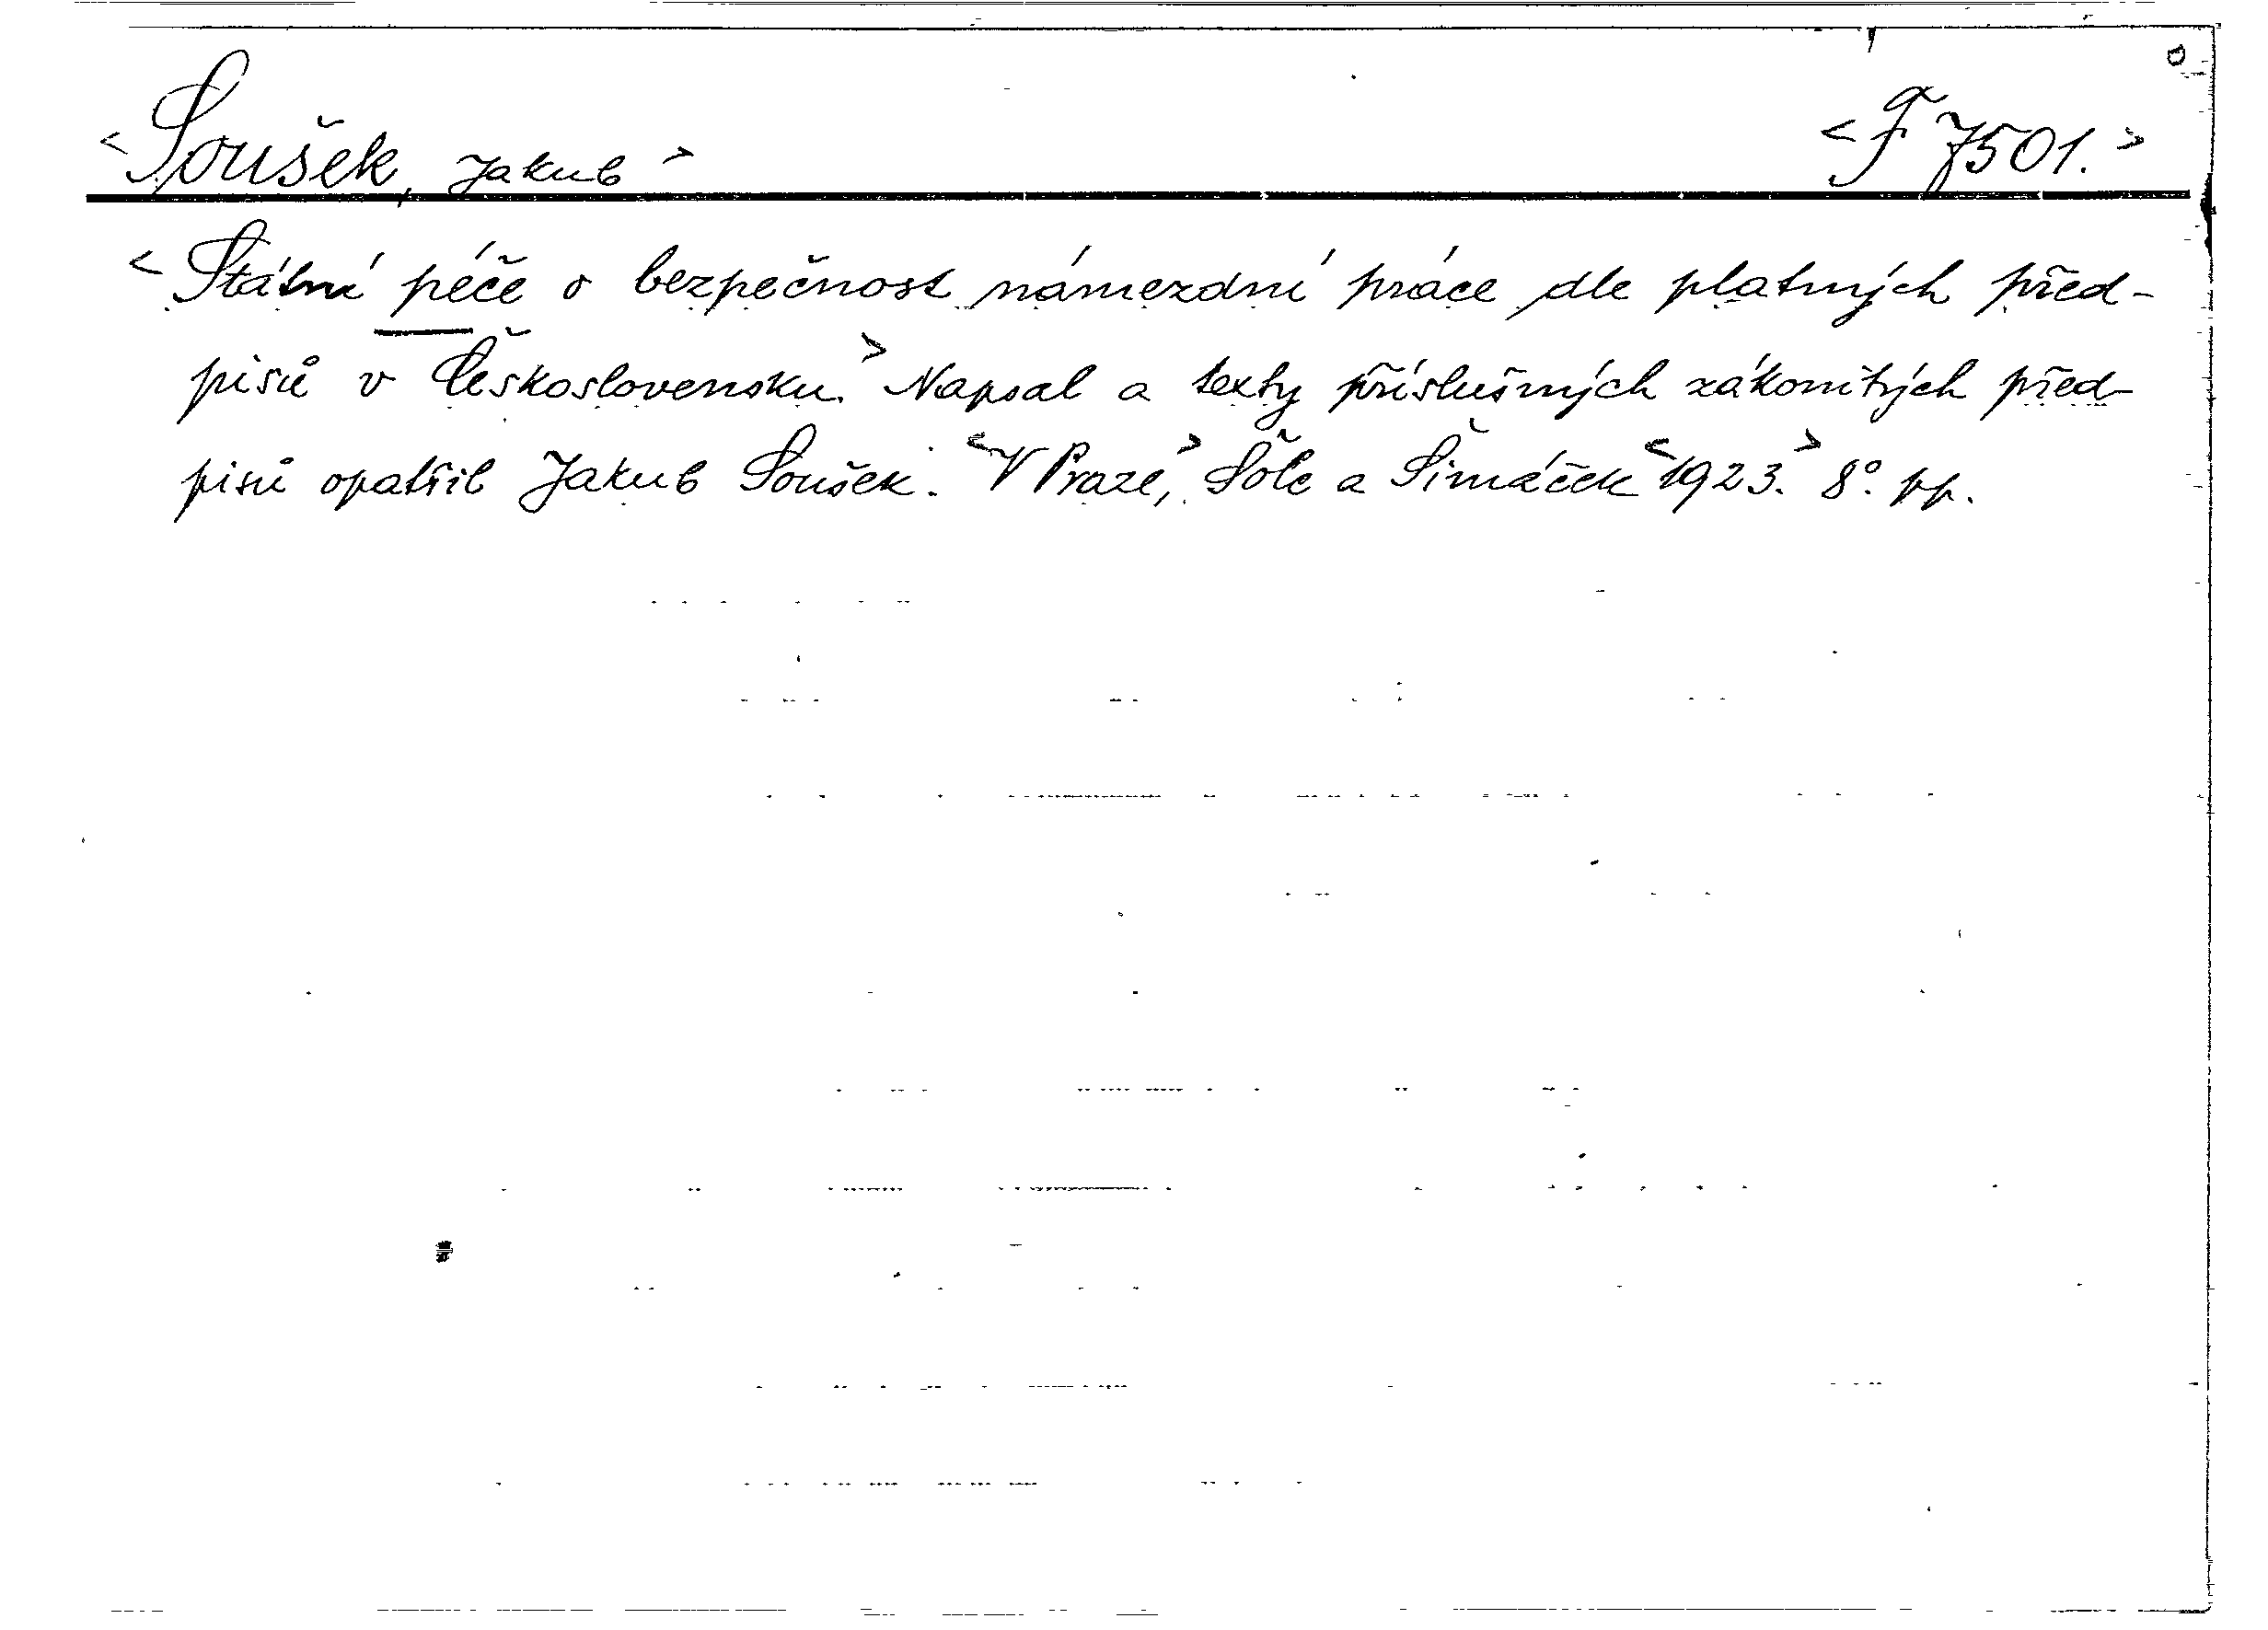 <Soušek, Jakub> <F 7501.>
<Státní péče o bezpečnost námezdní práce dle platných před-
pisů v Československu.> Napsal a texty příslušných zákonitých před-
pisů opatřil Jakub Soušek. <V Praze,> Šolc a Šimáček <1923.> 8°. pp.